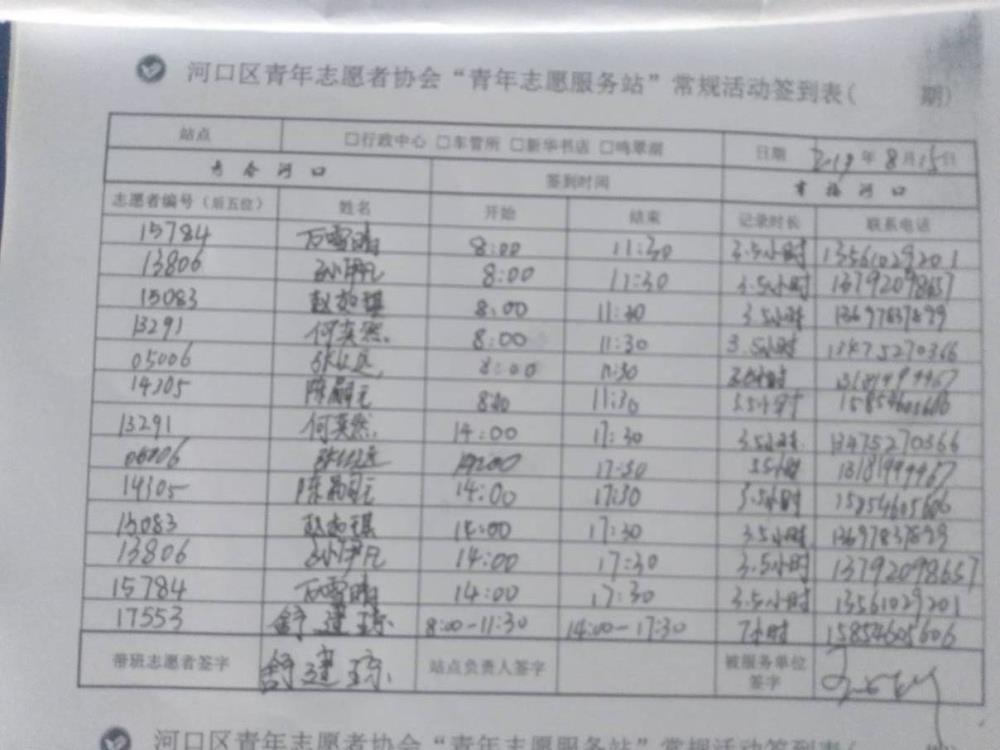 河口区青年志愿者协会“青年志愿服务站”常规活动签到表( 期)
站点 □行政中心 □车管所 □新华书店 □鸣翠湖 日期 年8月15日
青春河口 签到时间 幸福河口
志愿者编号（后五位） 姓名 开始 结束 记录时长 联系电话
15784 8:00 11:30 3.5小时 13561029201
13806 8:00 11:30 3.5小时 13792098657
15083 8:00 11:30 3.5小时 13697837899
13291 何奕然 8:00 11:30 3.5小时 13475270366
05006 8:00 11:30 3.5小时 13181999967
14305 陈 8:00 11:30 3.5小时 15854605606
13291 何奕然 14:00 17:30 3.5小时 13475270366
14:00 17:30 3.5小时 13181999967
14305 陈 14:00 17:30 3.5小时 15854605606
15083 14:00 17:30 3.5小时 13697837899
13806 14:00 17:30 3.5小时 13792098657
15784 14:00 17:30 3.5小时 13561029201
17553 舒建琼 8:00-11:30 14:00-17:30 7小时 15854605606
带班志愿者签字 舒建琼 站点负责人签字 被服务单位签字
河口区青年志愿者协会“青年志愿服务站”常规活动签到表(